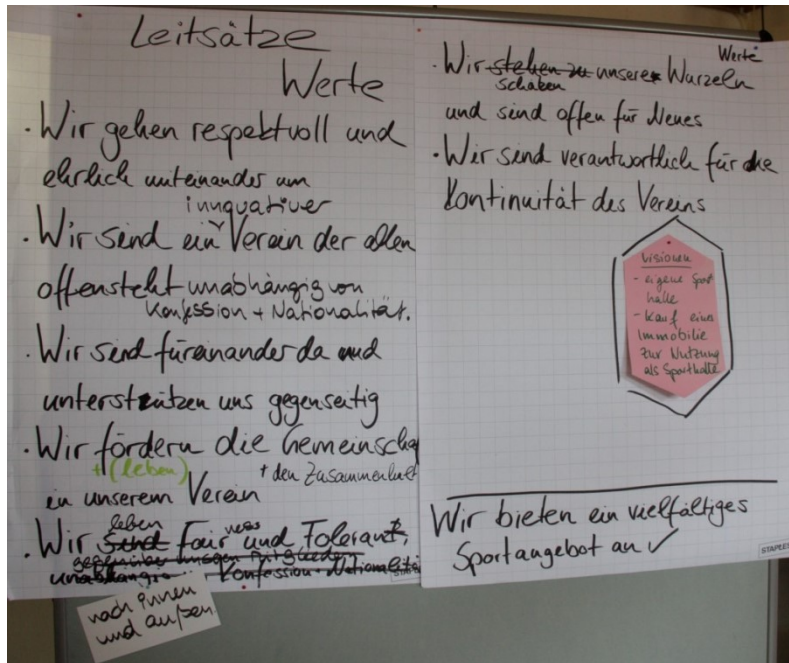 Leitsätze
Werte
· Wir gehen respektvoll und
ehrlich miteinander um
innovativer
· Wir sind ein Verein der allen
offensteht unabhängig von
Konfession + Nationalität.
· Wir sind füreinander da und
unterstützen uns gegenseitig
· Wir fördern die Gemeinscha
+ (leben)
+ den Zusammenhalt
in unserem Verein
leben
ness
· Wir sind Fair und Toleranz,
gegenüber unseren Mitgliedern
unabhängig Konfession + Nationalität
nach innen
und außen.
Werte
· Wir stehen zu unsere Wurzeln
schaben
und sind offen für Neues
· Wir sind verantwortlich für die
Kontinuität des Vereins
Visionen
- eigene Sport
halle
- Kauf einer
Immobilie
zur Nutzung
als Sporthalle
Wir bieten ein vielfältiges
Sportangebot an ✓
STAPLES